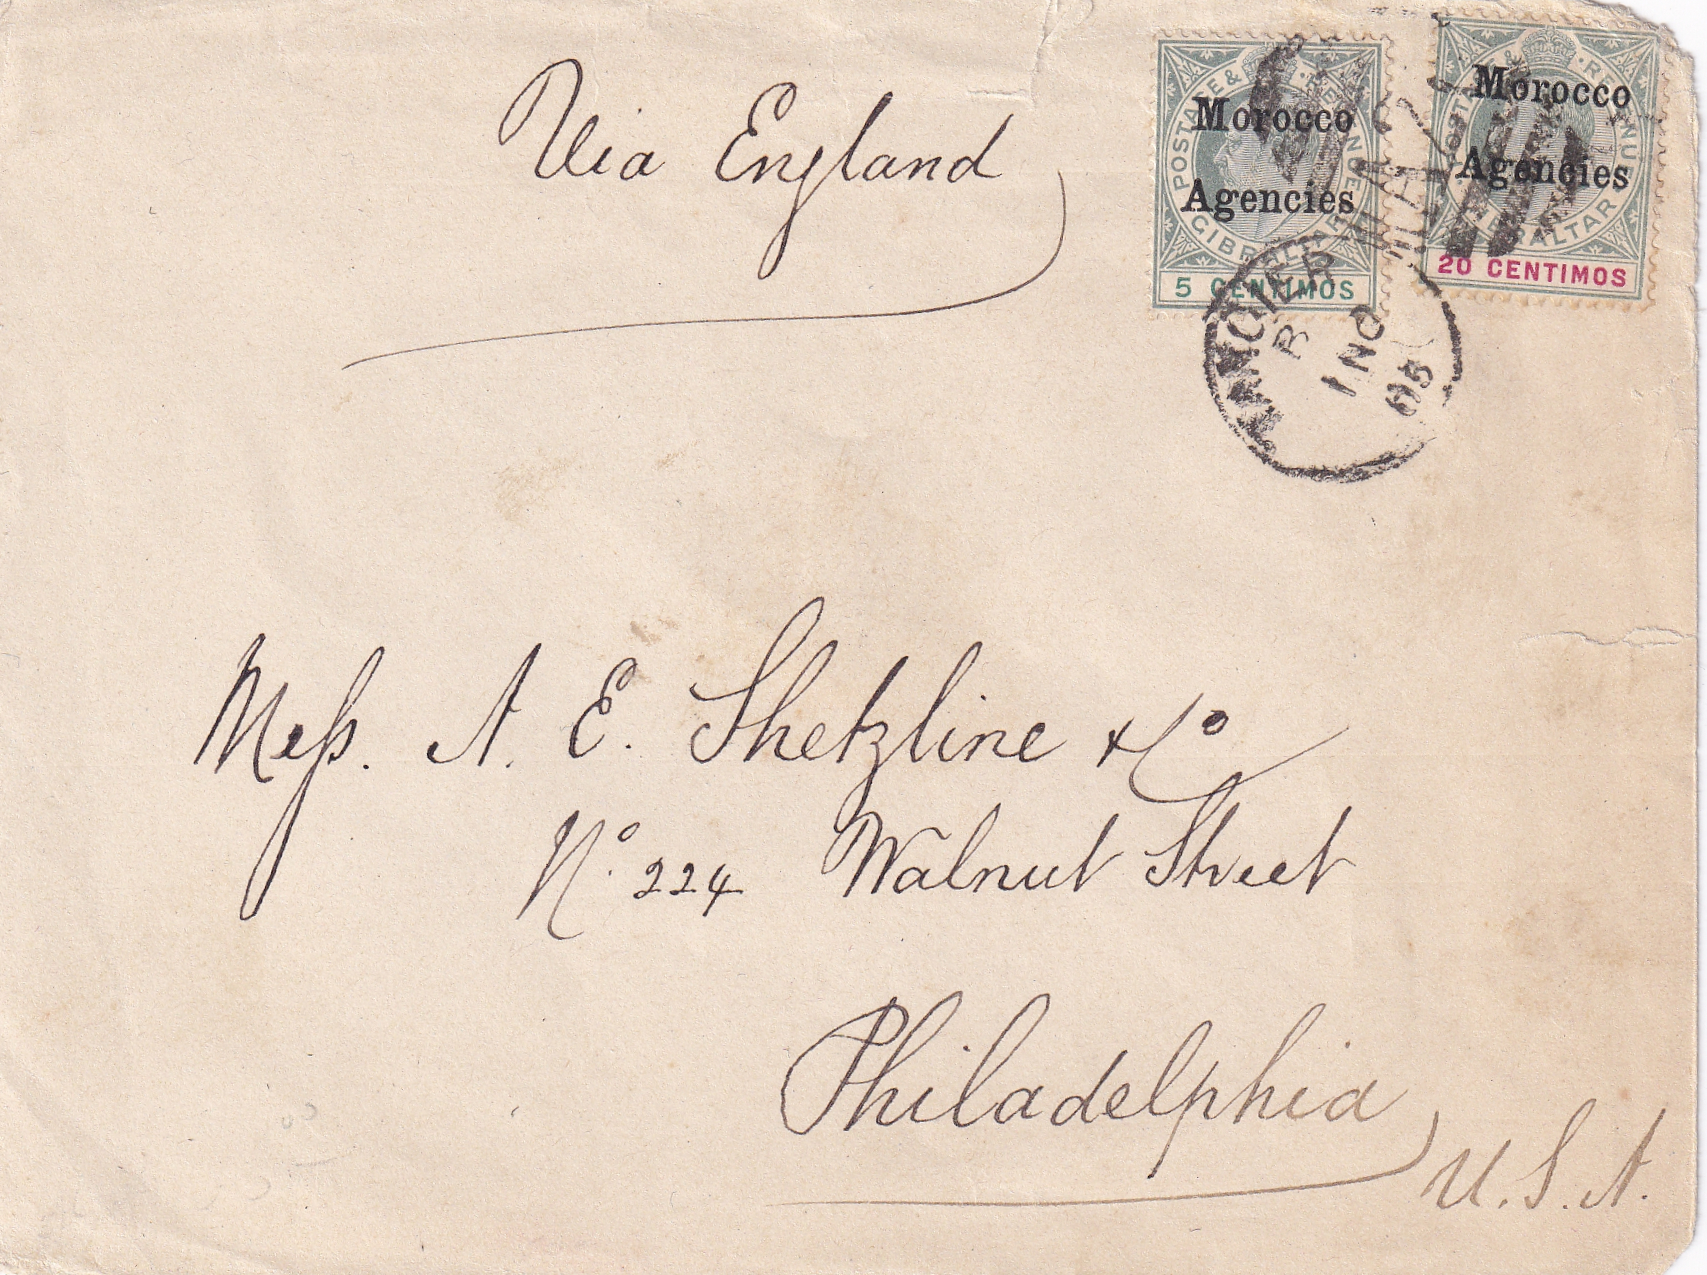 Via England
POSTAGE & REVENUE
GIBRALTAR
Morocco
Agencies
5 CENTIMOS
POSTAGE & REVENUE
GIBRALTAR
Morocco
Agencies
20 CENTIMOS
TANGIER
B
1 NO
05
Mess. A. E. Shetzline & Co
No. 224 Walnut Street
Philadelphia
U.S.A.